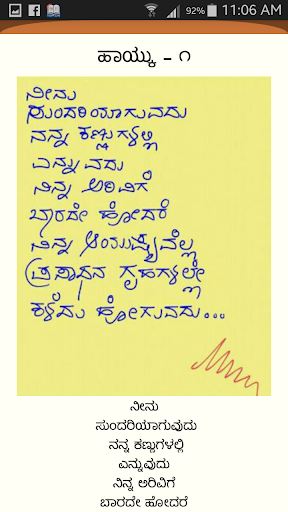 92% 11:06 AM
ಹಾಯ್ಕು - ೧
ನೀನು
ಸುಂದರಿಯಾಗುವುದು
ನನ್ನ ಕಣ್ಣುಗಳಲ್ಲಿ
ಎನ್ನುವದು
ನಿನ್ನ ಅರಿವಿಗೆ
ಬಾರದೇ ಹೋದರೆ
ನಿನ್ನ ಆಯುಷ್ಯವೆಲ್ಲ
ಪ್ರಸಾಧನ ಗೃಹಗಳಲ್ಲೇ
ಕಳೆದು ಹೋಗುವದು...
ನೀನು
ಸುಂದರಿಯಾಗುವುದು
ನನ್ನ ಕಣ್ಣುಗಳಲ್ಲಿ
ಎನ್ನುವುದು
ನಿನ್ನ ಅರಿವಿಗೆ
ಬಾರದೇ ಹೋದರೆ